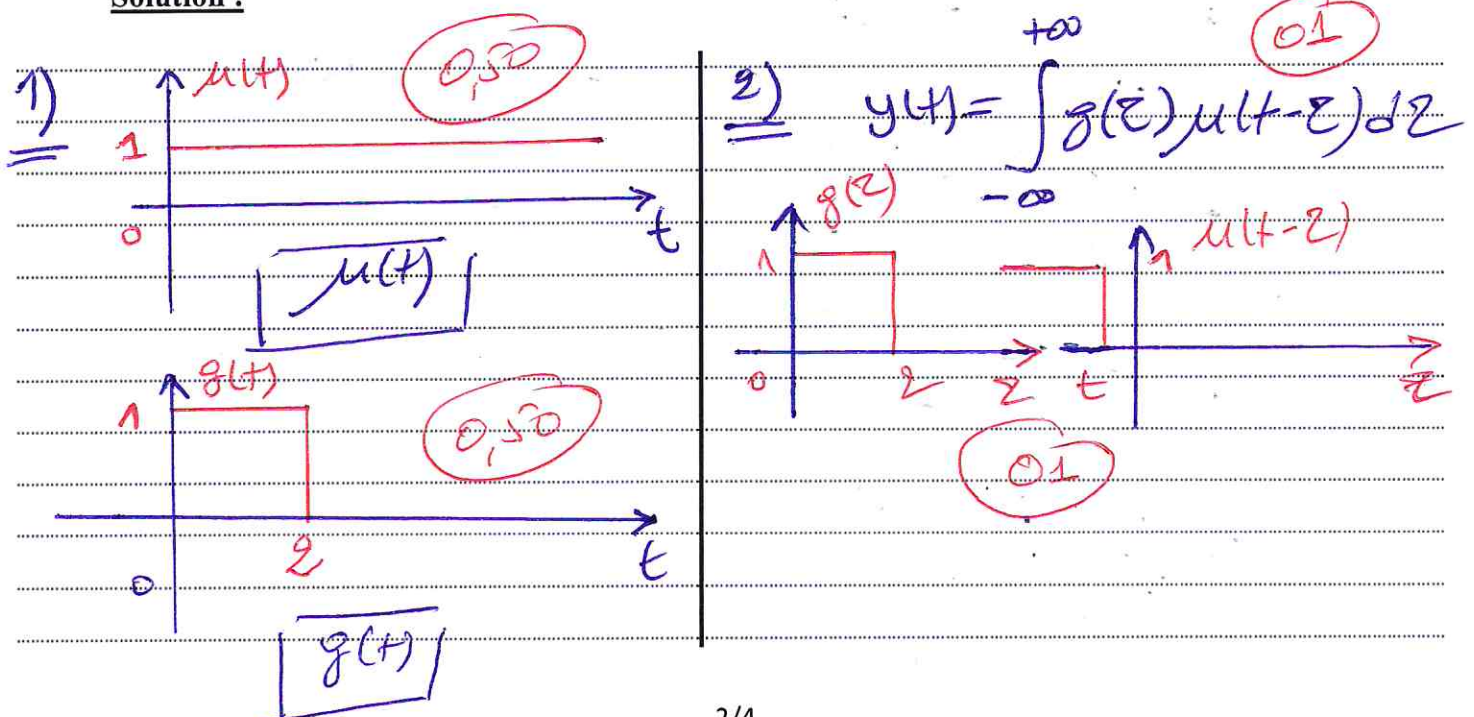 Solution :
1)
μ(t)
0,50
1
0
t
μ(t)
g(t)
1
0,50
2
t
0
g(t)
2) y(t) = ∫ g(τ) μ(t-τ) dτ
+∞
-∞
01
g(τ)
1
0
2
τ
μ(t-τ)
1
t
τ
01
2/4